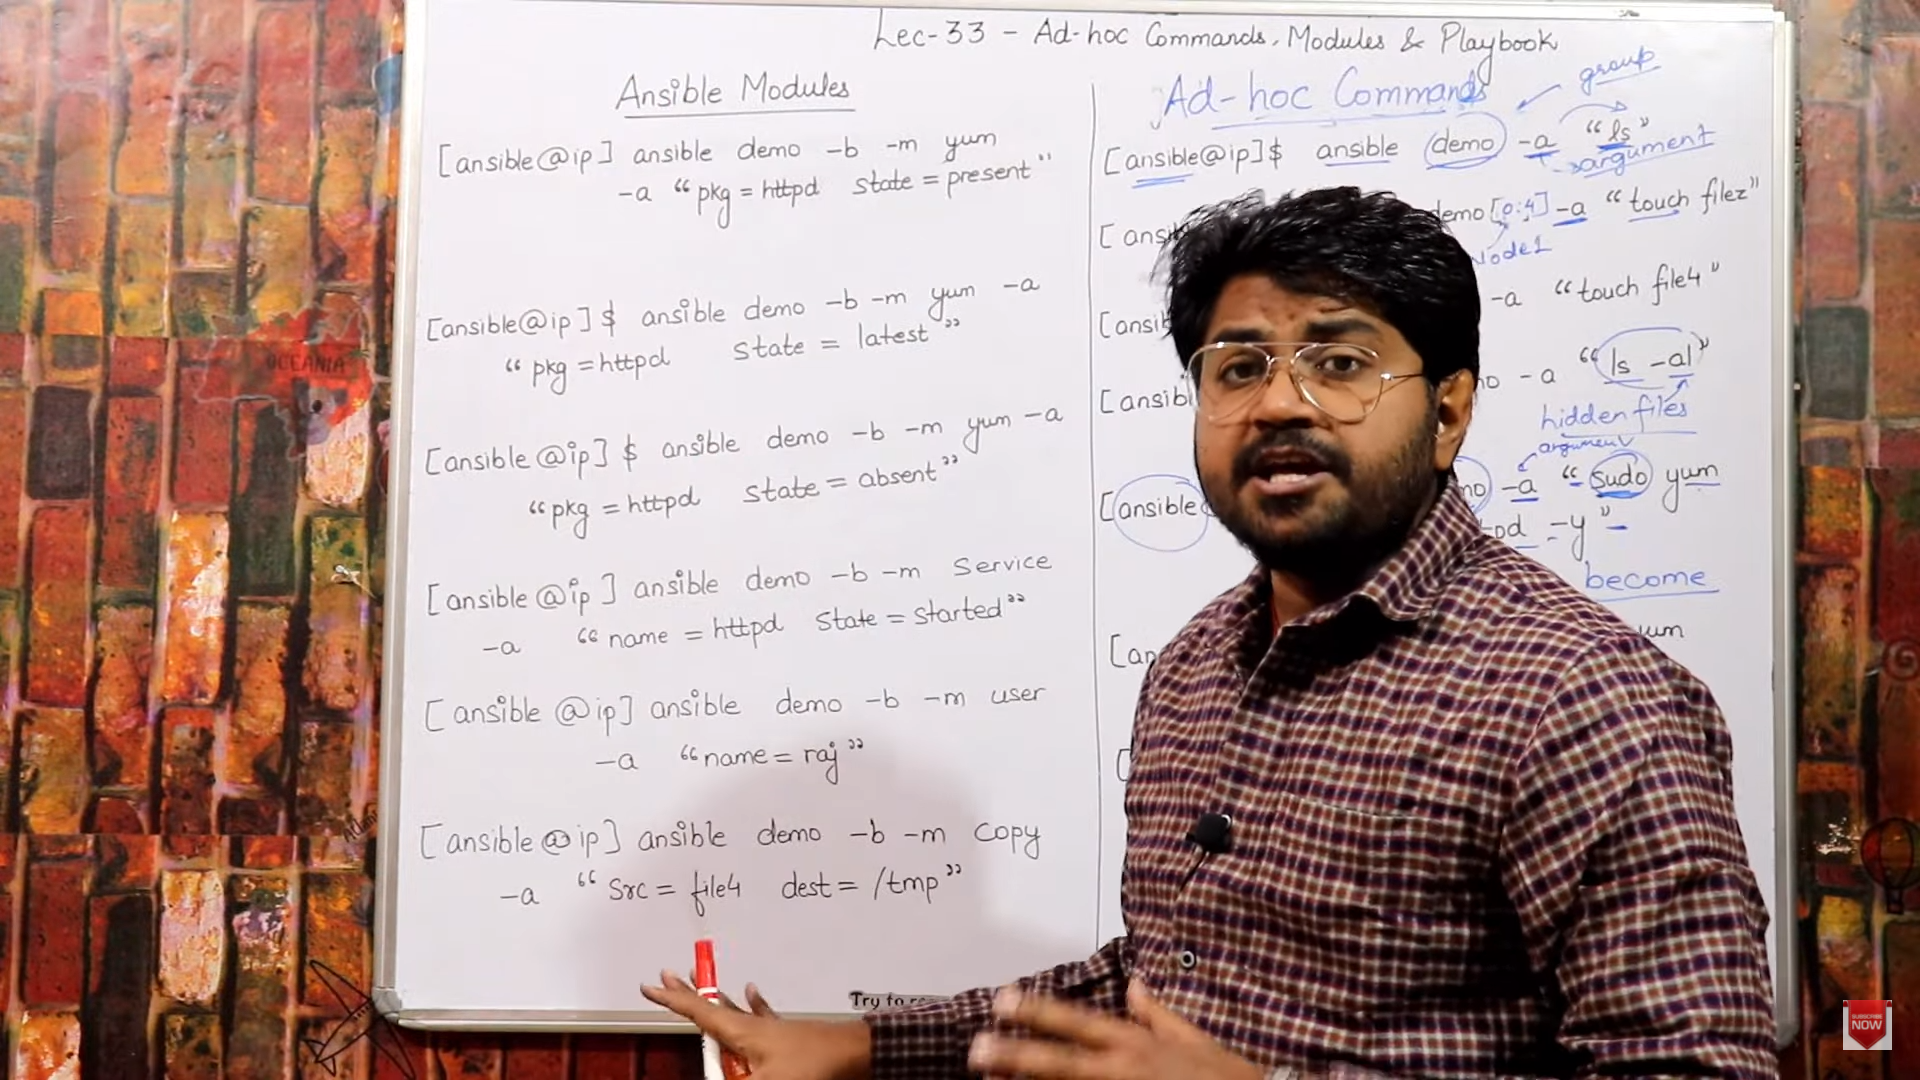 Lec-33 - Ad-hoc Commands, Modules & Playbook
Ansible Modules
[ansible@ip] ansible demo -b -m yum
-a “pkg = httpd state = present”
[ansible@ip]$ ansible demo -b -m yum -a
“pkg = httpd state = latest”
[ansible@ip]$ ansible demo -b -m yum -a
“pkg = httpd state = absent”
[ansible@ip] ansible demo -b -m Service
-a “name = httpd State = started”
[ansible@ip] ansible demo -b -m user
-a “name = raj”
[ansible@ip] ansible demo -b -m copy
-a “Src = file4 dest = /tmp”
Try to
Ad-hoc Commands
group
[ansible@ip]$ ansible demo -a “ls”
argument
demo [0:4] -a “touch filez”
Node1
-a “touch file4”
-a “ls -al”
hidden files
argument
[ansible -a “sudo yum
-y”
become
yum
OCEANIA
SUBSCRIBE
NOW